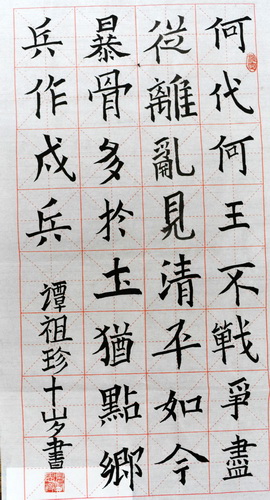 何代何王不戰爭盡
從離亂見清平如今
暴骨多於土猶點鄉
兵作戍兵
譚祖珍十岁書